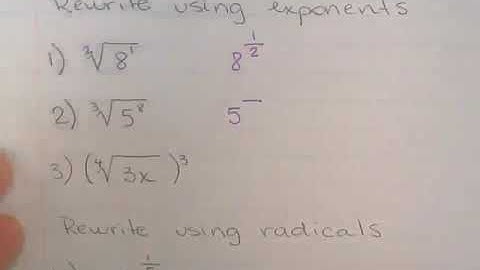 Rewrite using exponents
1) ²√8¹ 8^(1/2)
2) ³√5⁸ 5
3) (⁴√3x)³
Rewrite using radicals